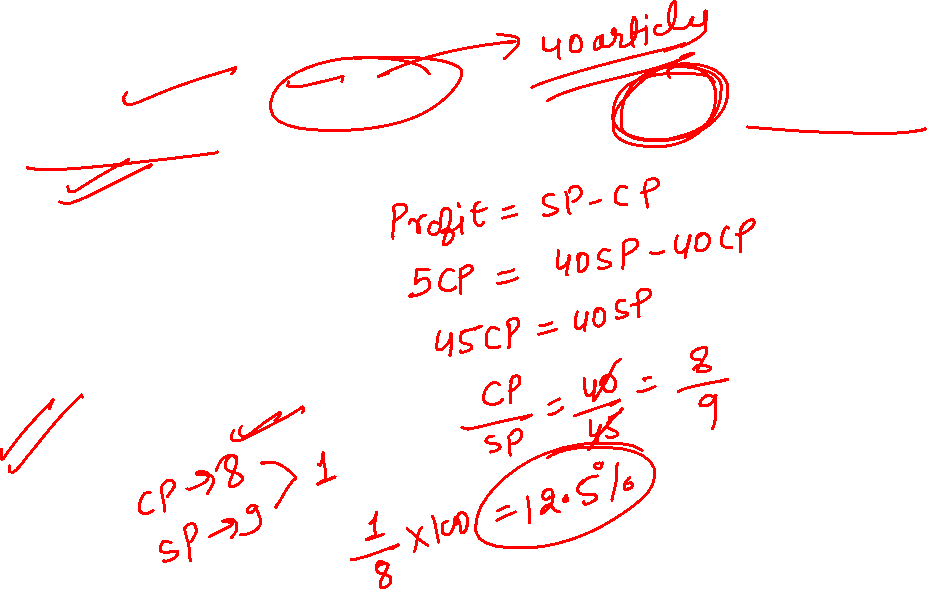 40 articles
Profit = SP - CP
5CP = 40SP - 40CP
45CP = 40SP
CP/SP = 40/45 = 8/9
CP → 8
SP → 9 > 1
1/8 × 100 = 12.5%